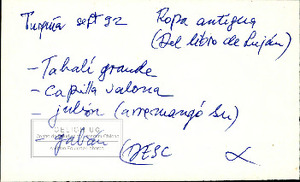 Turquía sept 92
Ropa antigua
(Del libro de Luján)
- Tahalí grande
- capilla valona
- jubón (arremangó su)
- gabán
DESC